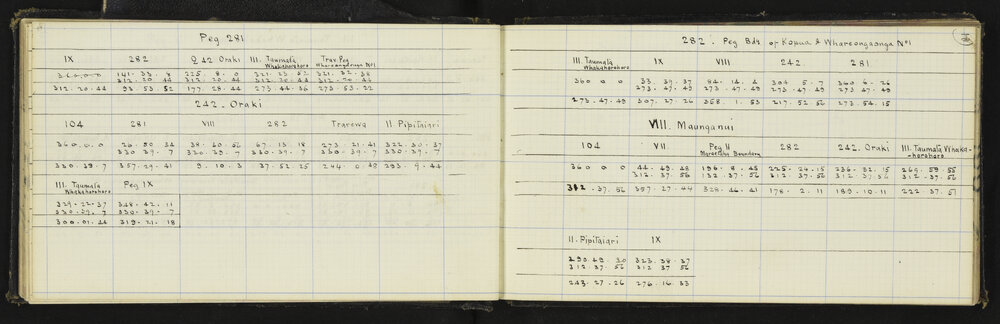 Peg 281
IX 282 242 Oraki III. Taumata Whakahorahoro Trav Peg Whareongaonga No1
360.0.0 141.33.8 225.8.0 321.23.52 321.32.38
312.20.44 312.20.44 312.20.44 312.20.44
312.20.44 93.53.52 177.28.44 273.44.36 273.53.22
242. Oraki
104 281 VIII 282 Trarewa 11. Pipitaiari
360.0.0 26.50.34 38.30.56 67.13.18 273.21.41 322.30.37
330.39.7 330.39.7 330.39.7 330.39.7 330.39.7
330.39.7 357.29.41 9.10.3 37.52.25 244.0 293.9.44
III. Taumata Whakahorahoro Peg IX
329.22.37 348.42.11
330.39.7 330.39.7
300.01.44 319.21.18
282. Peg Bdy of Kopua & Whareongaonga No1
III. Taumata Whakahorahoro IX VIII 242 281
360 0 0 33.39.37 84.14.4 304.5.7 360.6.26
273.47.49 273.47.49 273.47.49 273.47.49
273.47.49 307.27.26 358.1.53 217.52.56 273.54.15
VIII. Maunganui
104 VII. Peg II Boundary 282 242. Oraki III. Taumata Whaka-
-horahoro
360 0 0 44.49.48 196.8.45 225.24.15 236.32.15 269.59.55
312.37.56 132.37.56 312.37.56 312.37.56 312.37.56
312.37.56 357.27.44 328.46.41 178.2.11 189.10.11 222.37.51
11. Pipitaiari IX
290.49.30 323.38.37
312.37.56 312 37 56
243.27.26 276.16.33